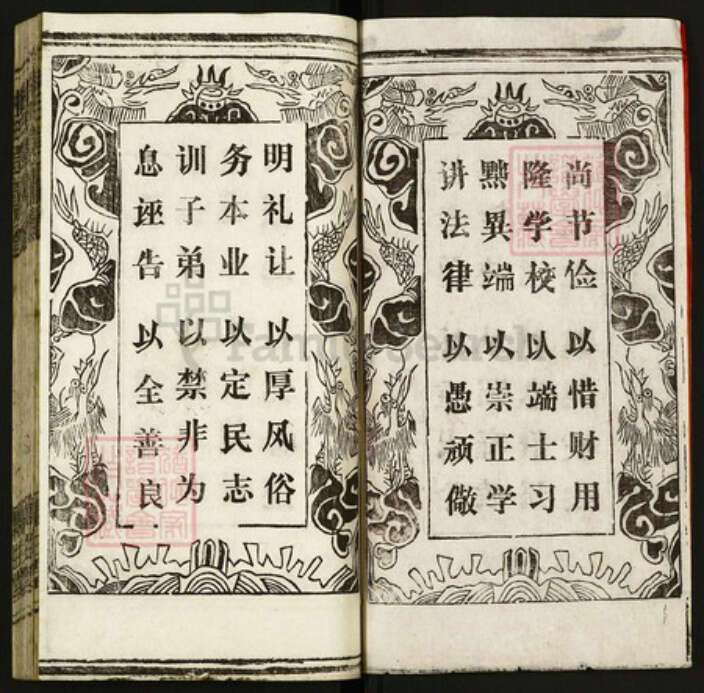 尚节俭 以惜财用
隆学校 以端士习
黜異端 以崇正学
讲法律 以愚顽儆
明礼让 以厚风俗
务本业 以定民志
训子弟 以禁非为
息诬告 以全善良